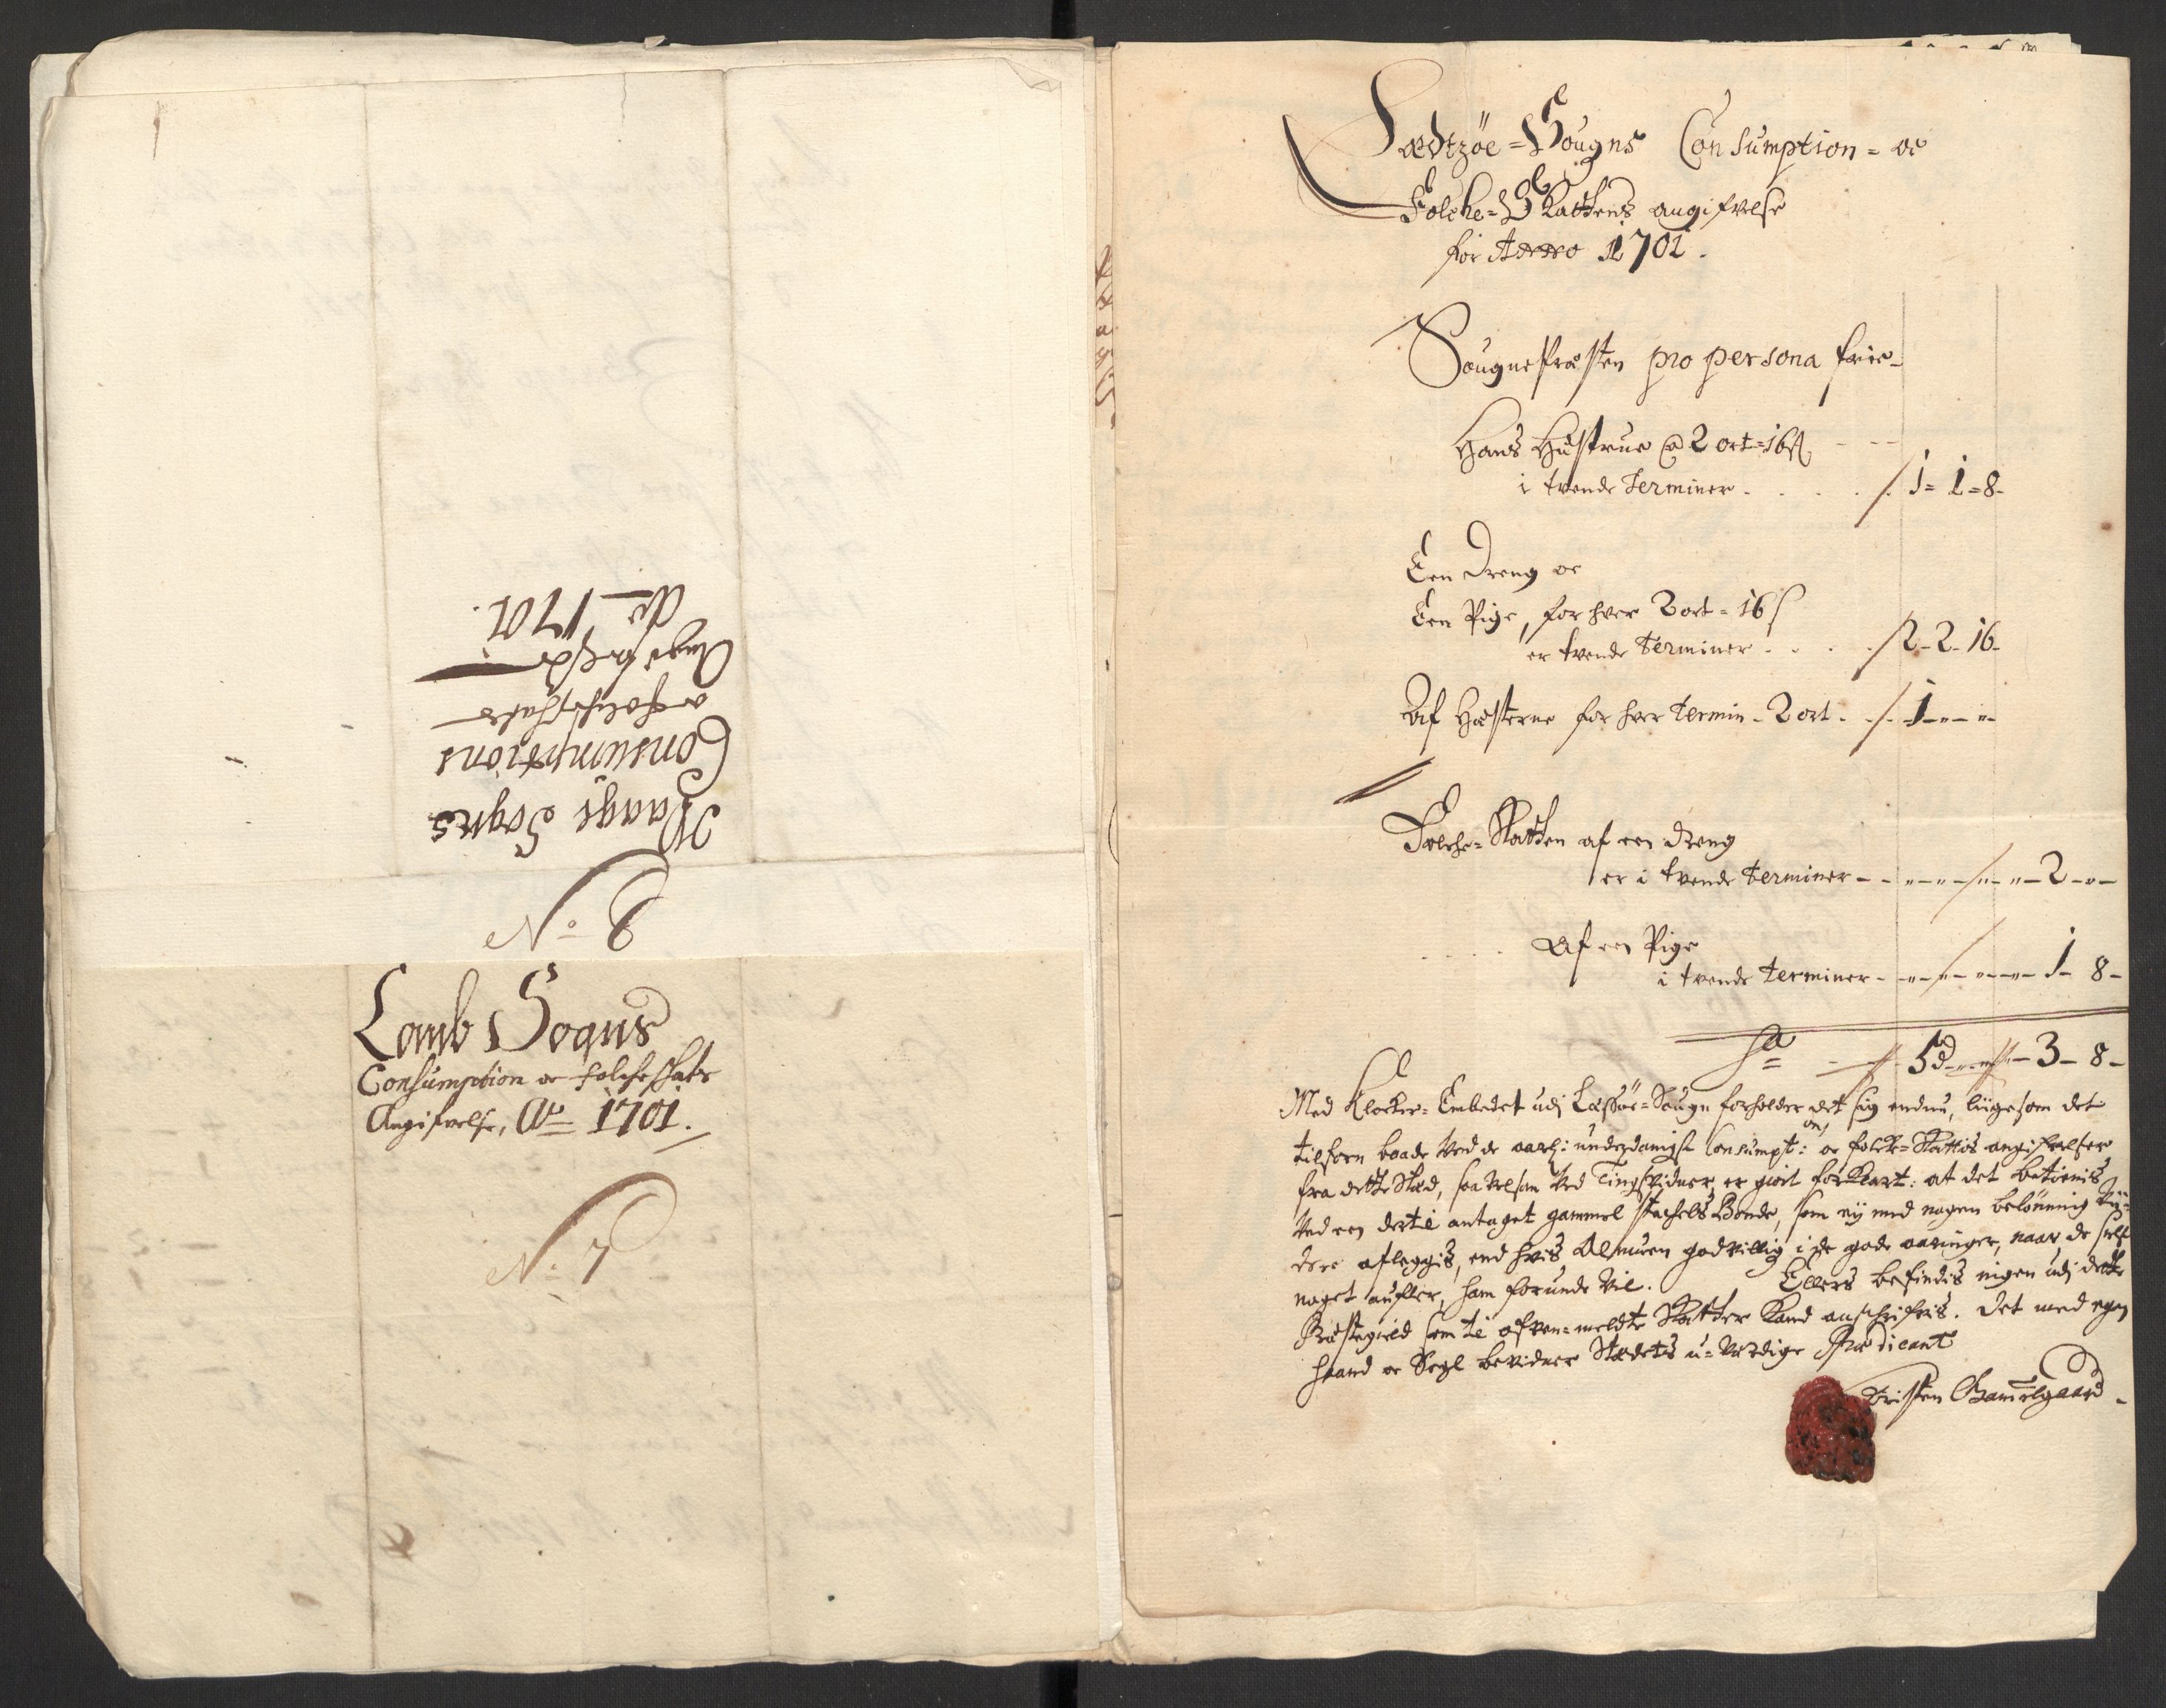 Waage Sogns
Consumptions
oc folcheschats
Angifvelse
Ao 1701.
No 8
Laub Sogns
Consumption oc folcheschats
Angifvelse, Ao 1701.
No 7
Sougns Consumption = oc
Folche-Skattens angifvelse
for Anno 1701.
Sougnepræsten pro persona frie
Hans Hustrue @ 2 ort = 16 s
i tvende Terminer . . . . 1 = 1 = 8 -
Een dreng oc
Een Pige, for hver 2 ort = 16 s
er tvende Terminer . . . . 2 - 2 - 16 -
Af Hæsterne for hver Termin - 2 ort . . 1 - " - "
Folche-Skatten af een dreng
er i tvende terminer - - " - " - " - 2 - " -
Af een Pige
i tvende terminer - " - " - " - 1 - 8 -
Sa 5 d - 3 - 8 -
Med Klocker-Embedet udj Sougn forholder det sig endnu, liigesom det
tilforn baade Ved de aarl: underdanigst Consumpt: oc folck-Skattis angifvelser
fra dette Stæd, saa velsom Ved Tingsvidner er giort forklart: at det betienis
Ved een dertil antaget gammel Bonde, som ey med nogen belønning
dere afleggis, end hvis Almuen godvillig i de gode aaringer, naar de self
noget aufler, ham forunde vil. Ellers befindis ingen udj dette
Præstegield som til ofven-meldte Skatter kand anschrifvis. Det med egen
haand oc Segl bevidner Stædets u-værdige Prædicant
Christen Gammelgaard